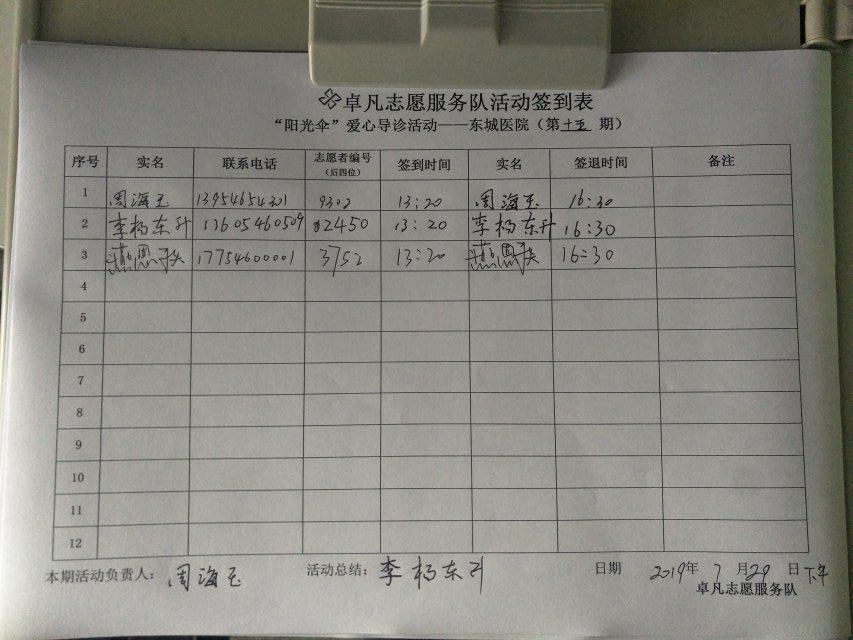 卓凡志愿服务队活动签到表
“阳光伞”爱心导诊活动——东城医院（第十五期）
序号 实名 联系电话 志愿者编号（后四位） 签到时间 实名 签退时间 备注
1 周海玉 13954654321 9302 13:20 周海玉 16:30
2 李杨东升 13605460509 2450 13:20 李杨东升 16:30
3 17754600001 3752 13:20 16:30
4
5
6
7
8
9
10
11
12
本期活动负责人： 周海玉 活动总结： 李杨东升 日期 2019年 7月29日下午
卓凡志愿服务队